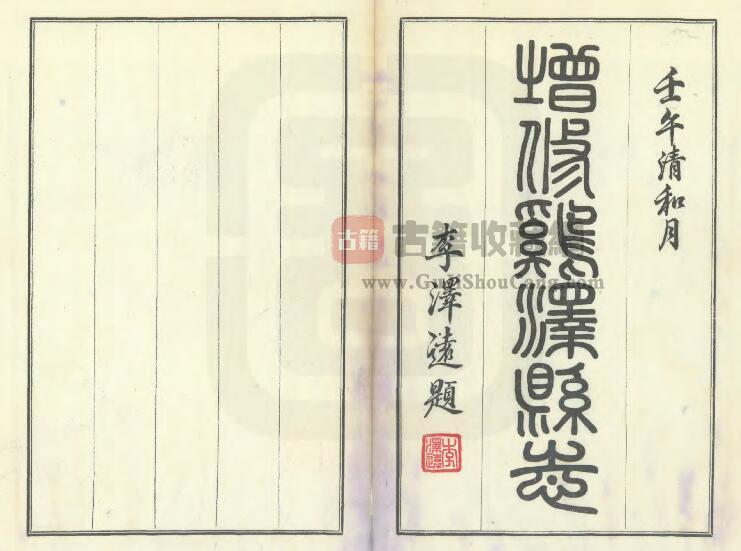 壬午清和月
增修雞澤縣志
李澤遠題
古籍
古籍收藏網
www.GujiShouCang.com